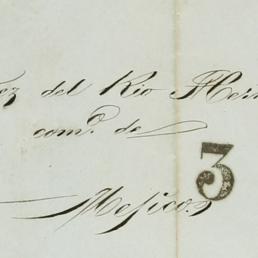 ez del Rio Her
com.º de
Mejico.
3